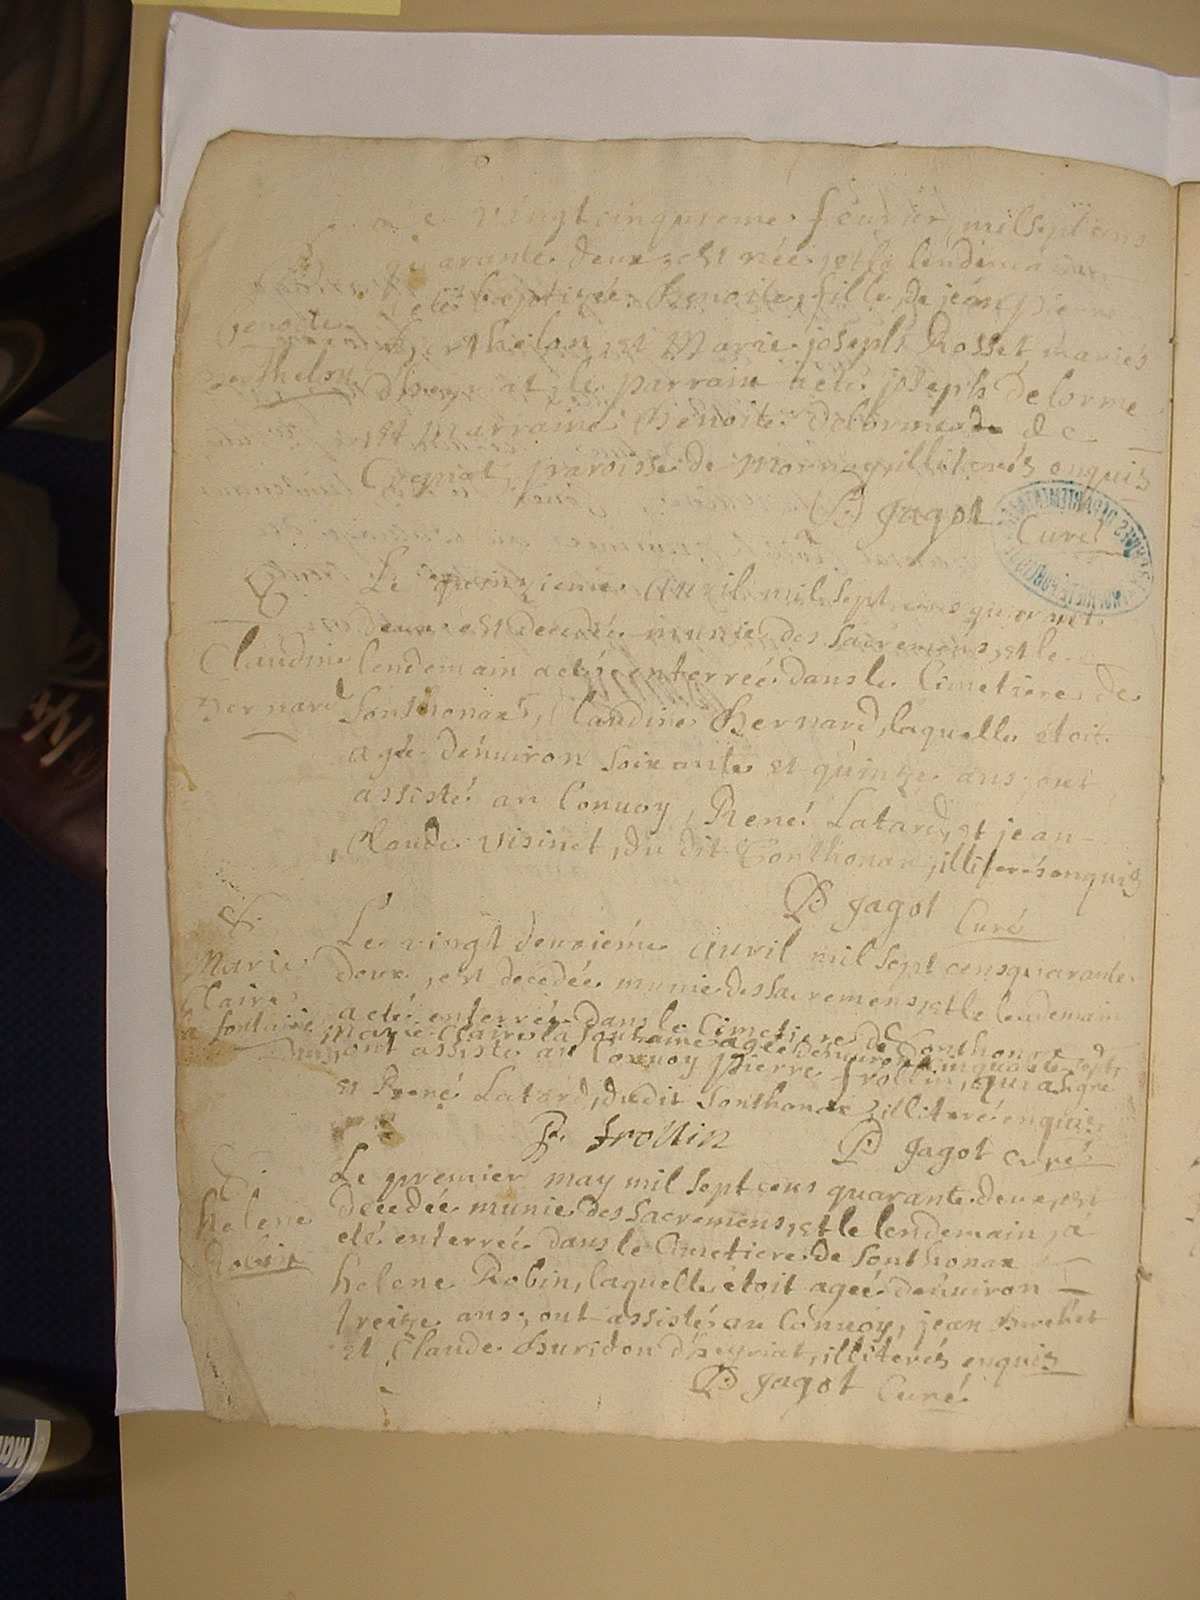 vingtcinquieme feurier, milsept cens
quarante deux, est née, et le lendemain
a eté baptizée Benoite, fille de jean pierre
Benoite
Berthelon, et Marie joseph Rosset, mariés
Berthelon
d'heyriat, le parrain a eté joseph delorme
et Marraine Benoite delorme de
Ceyniat, paroisse de Mornay, illiterés enquis
B Jagot Curé
Le quinzieme auril milsept cens quarante
deux est decedée munie des sacremens, et le
Claudine
lendemain a eté enterrée dans le Cimetiere de
Bernard
Sonthonax, Claudine Bernard, laquelle étoit
agée d'enuiron soixante et quinze ans, ont
assisté au Conuoy, René Latard, et jean
Claude visinet, du dit Sonthonax, illiterés enquis
B Jagot Curé
Le vingt deuxiéme auril mil sept cens quarante
Marie
deux, est decedée munie des sacremens, et le lendemain
Claire
a eté enterrée dans le Cimetiere de Sonthonax
la fontaine
Marie Claire la fontaine agée d'enuiron cinquante sept
ans, ont assisté au Conuoy pierre frollin, qui a signé
et René Latard, du dit Sonthonax, illiteré enquis
P. frollin B Jagot curé
Le premier may mil sept cens quarante deux, est
decedée munie des sacremens, et le lendemain, a
helene
eté enterrée dans le Cimetiere de Sonthonax
Robin
helene Robin, laquelle étoit agée d'enuiron
treize ans, ont assisté au Conuoy, jean
et Claude Buridon d'heyriat, illiterés enquis
B Jagot Curé